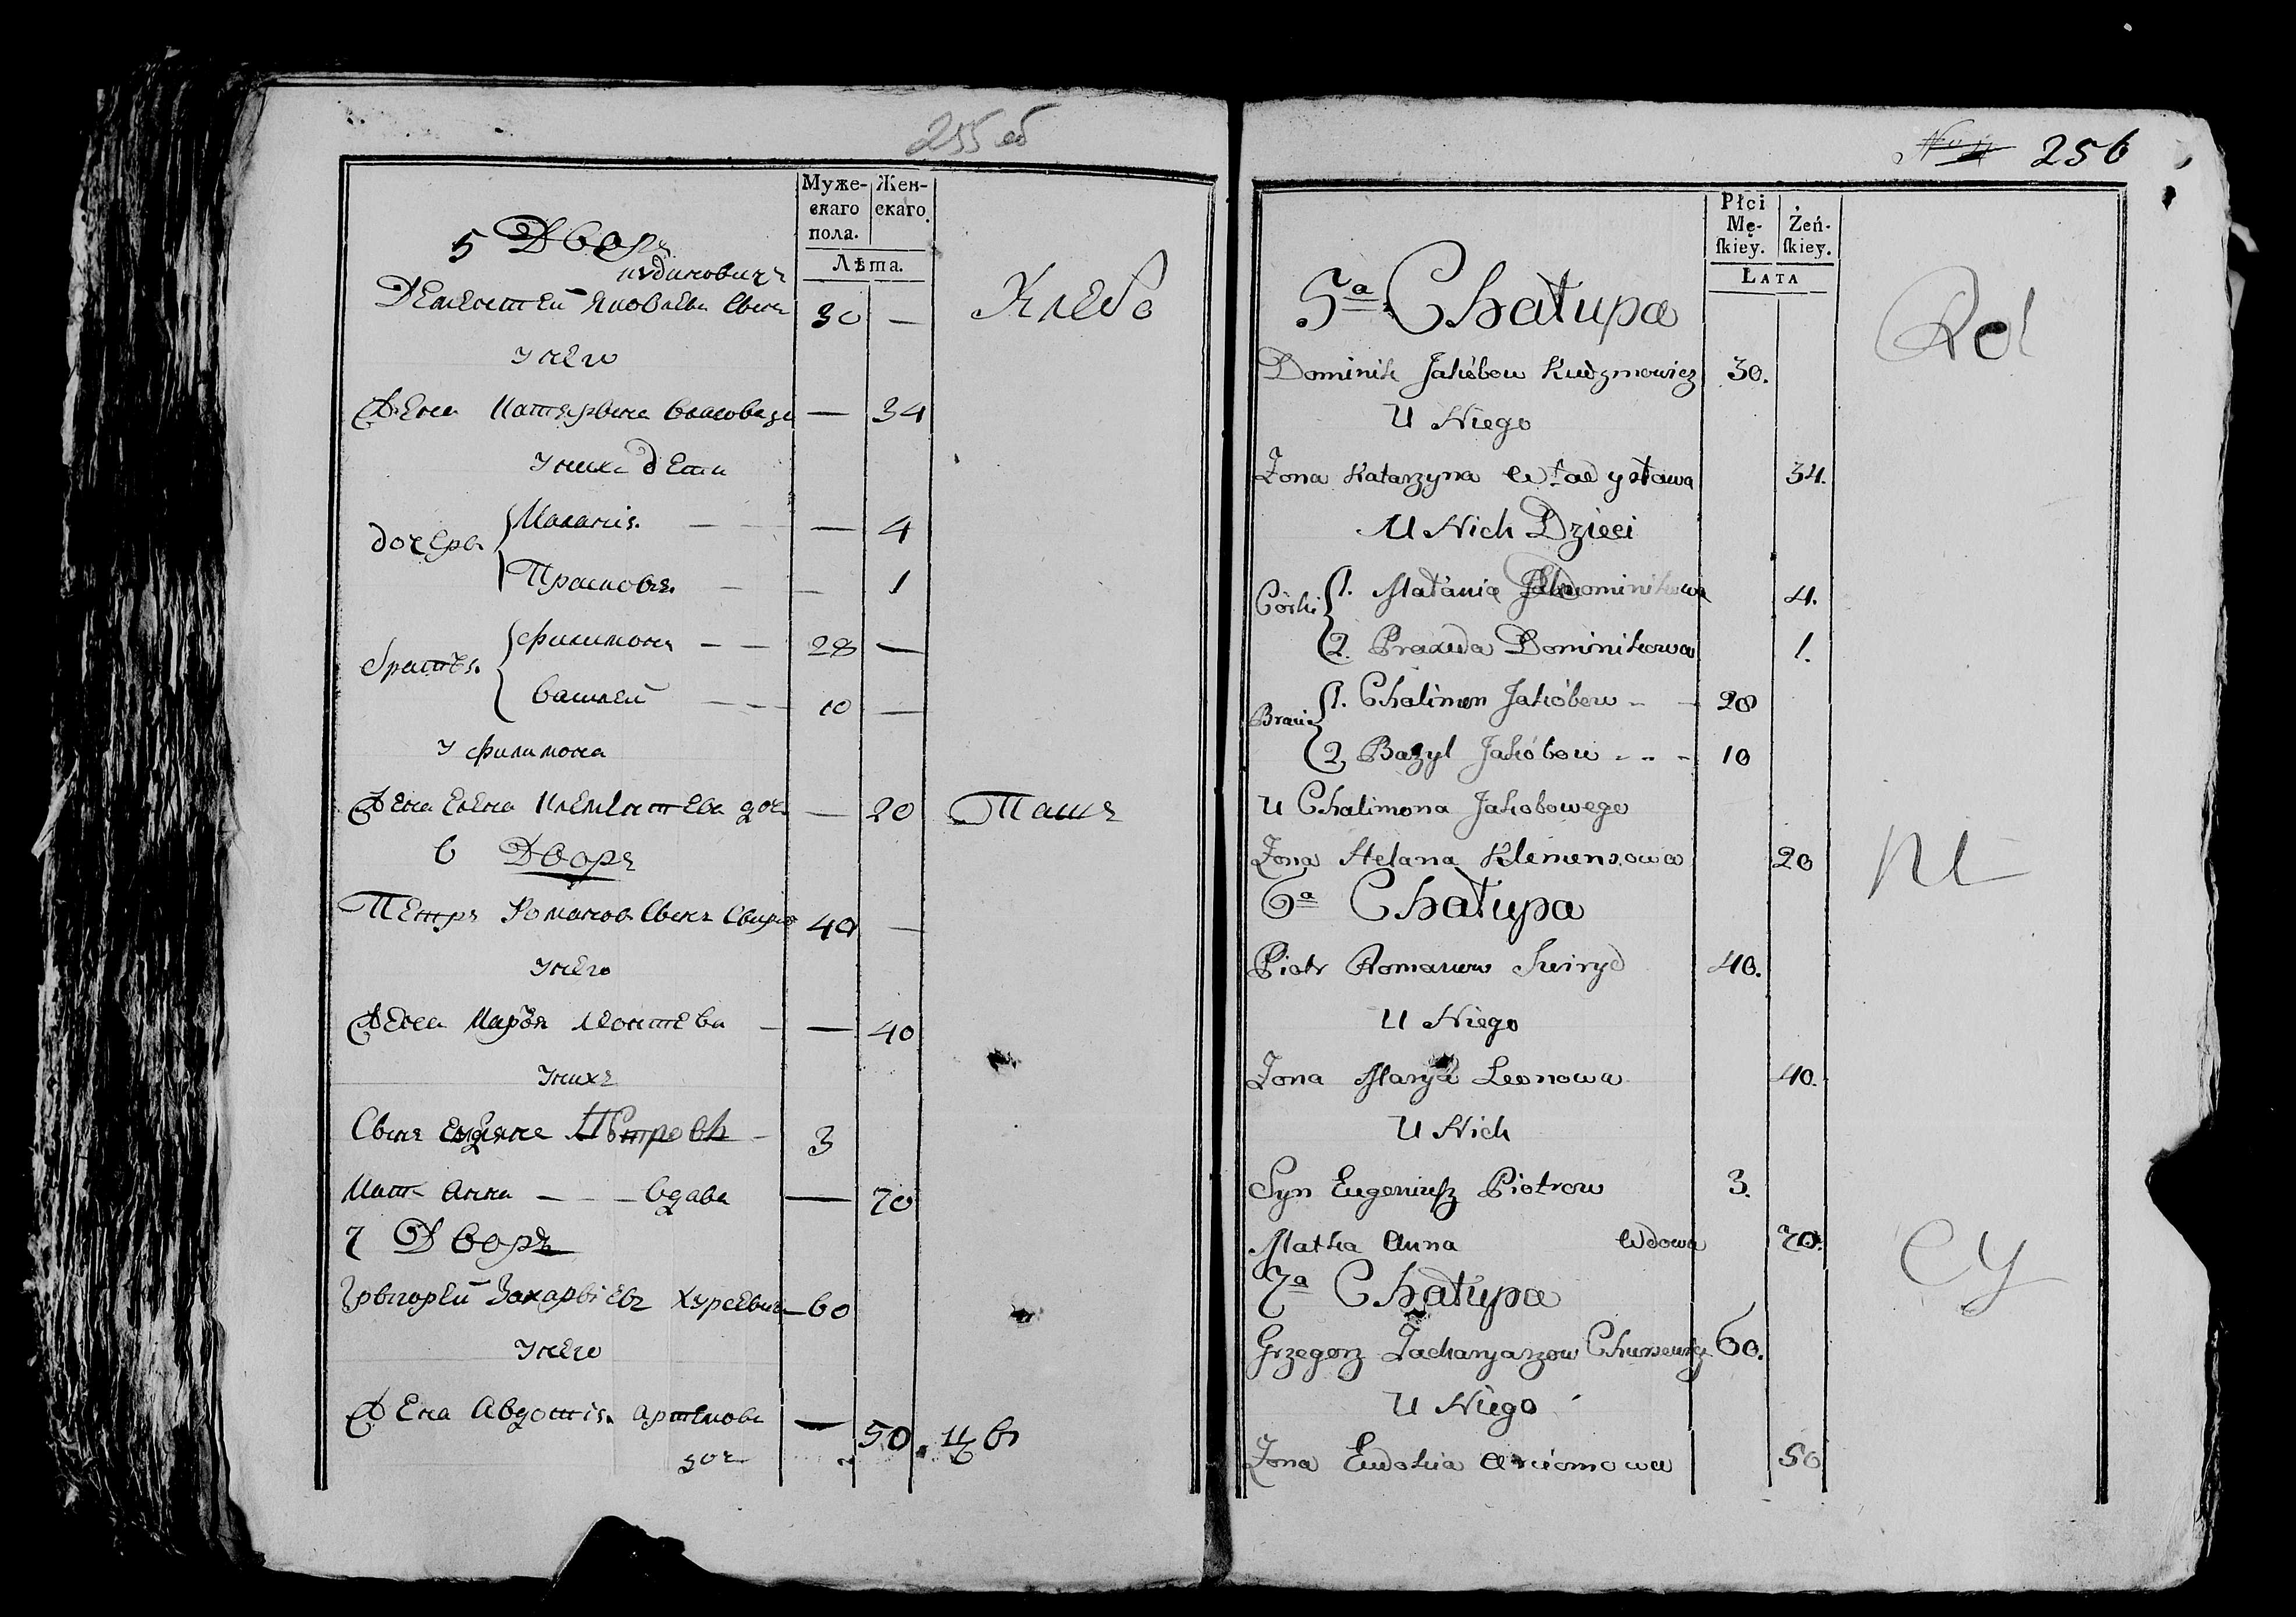 255 об
Муже-
скаго
пола.
Жен-
скаго.
Лѣта.
5 Дворъ
Яковлевъ Сынъ 30 —
Хлебо
у него
Жена Катярына — 34
у нихъ дети
дочеръ Маланія — 4
Прасковья — 1
братья Филимонъ 28 —
Василей 10 —
у Филимона
Жена Елена Клементева доч — 20
Пашъ
6 Дворъ
Петръ Романовъ Сынъ 40 —
у него
Жена Марья Леонтева — 40
у нихъ
Сынъ Петровъ 3
Мать Анна — вдава — 70
7 Дворъ
Захарьіевъ Хурсевичъ 60
у него
Жена Авдотія Артемова — 50
доч
256
Płci
Mę-
ſkiey.
Żeń-
ſkiey.
LATA
5a Chałupa
Rol
Dominik Jakóbow Kudzmowicz 30.
U Niego
Żona Katarzyna Władysława 34.
U Nich Dzieci
Córki 1. Małania Dominikowa 4.
2. Praxeda Dominikowa 1.
Bracia 1. Chalimon Jakóbow 28
2, Bazyl Jakóbow 10
u Chalimona Jakobowego
Żona Helana Klemensowa 20
ni
6a Chałupa
Piotr Romanow Swiryd 40.
U Niego
Żona Marya Leonowa 40.
U Nich
Syn Eugeniusz Piotrow 3.
Matka Anna Wdowa 70.
cy
7a Chałupa
Grzegorz Zacharyaszow Chursewicz 60.
U Niego
Żona Eudokia Arciomowa 50